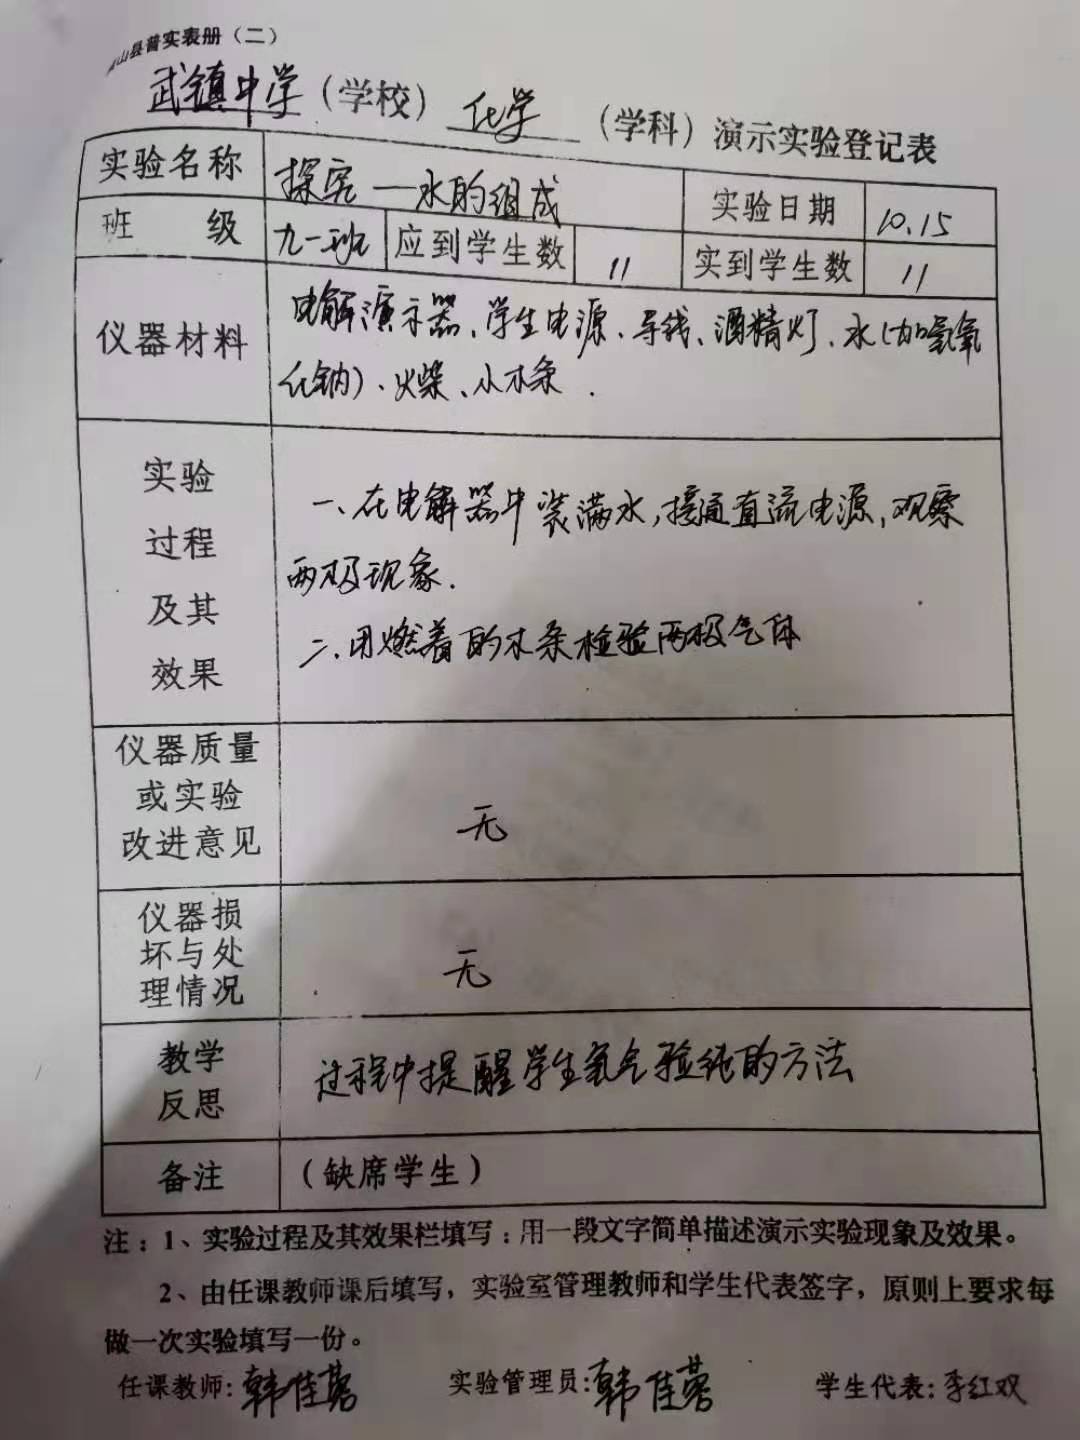 山县普实表册（二）
武镇中学（学校）化学（学科）演示实验登记表
实验名称 探究一水的组成 实验日期 10.15
班级 九一班 应到学生数 11 实到学生数 11
仪器材料
电解演示器、学生电源、导线、酒精灯、水（加氢氧
化钠）、火柴、小木条.
实验
过程
及其
效果
一、在电解器中装满水，接通直流电源，观察
两极现象.
二、用燃着的木条检验两极气体
仪器质量
或实验
改进意见
无
仪器损
坏与处
理情况
无
教学
反思
过程中提醒学生氢气验纯的方法
备注 （缺席学生）
注：1、实验过程及其效果栏填写：用一段文字简单描述演示实验现象及效果。
2、由任课教师课后填写，实验室管理教师和学生代表签字，原则上要求每
做一次实验填写一份。
任课教师：韩佳 实验管理员：韩佳 学生代表：李红双